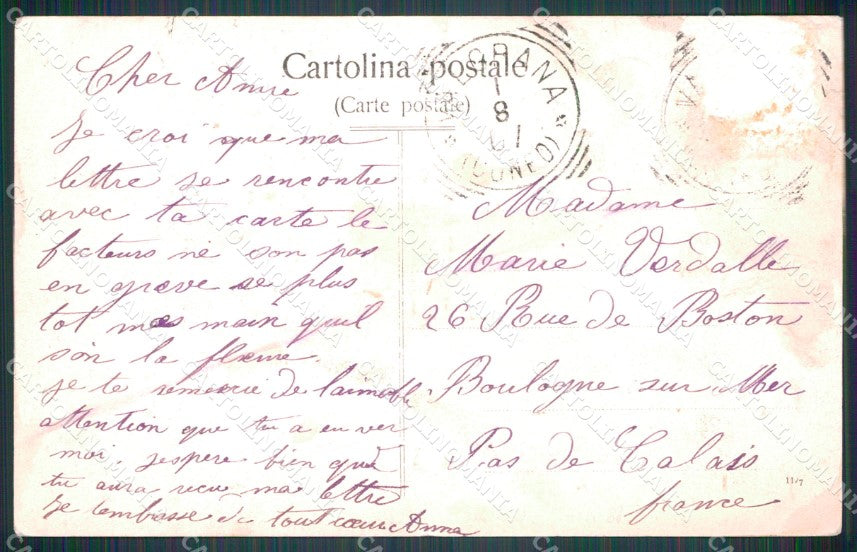 Cartolina postale
(Carte postale)
GRANA
1
8
(CUNEO)
VA
Cher Amie
Je croi que ma
lettre se rencontre
avec ta carte le
facteurs ne son pas
en greve se plus
tot mes main qu'il
son la fleme
Je te remercie de l'aimable
attention que tu a eu ver
moi. J'espere bien que
tu aura recu ma lettre
Je t'embrasse de tout cœur Anna
Madame
Marie Verdalle
26 Rue de Boston
Boulogne sur Mer
Pas de Calais
france
11/7
CARTOLINOMANIA